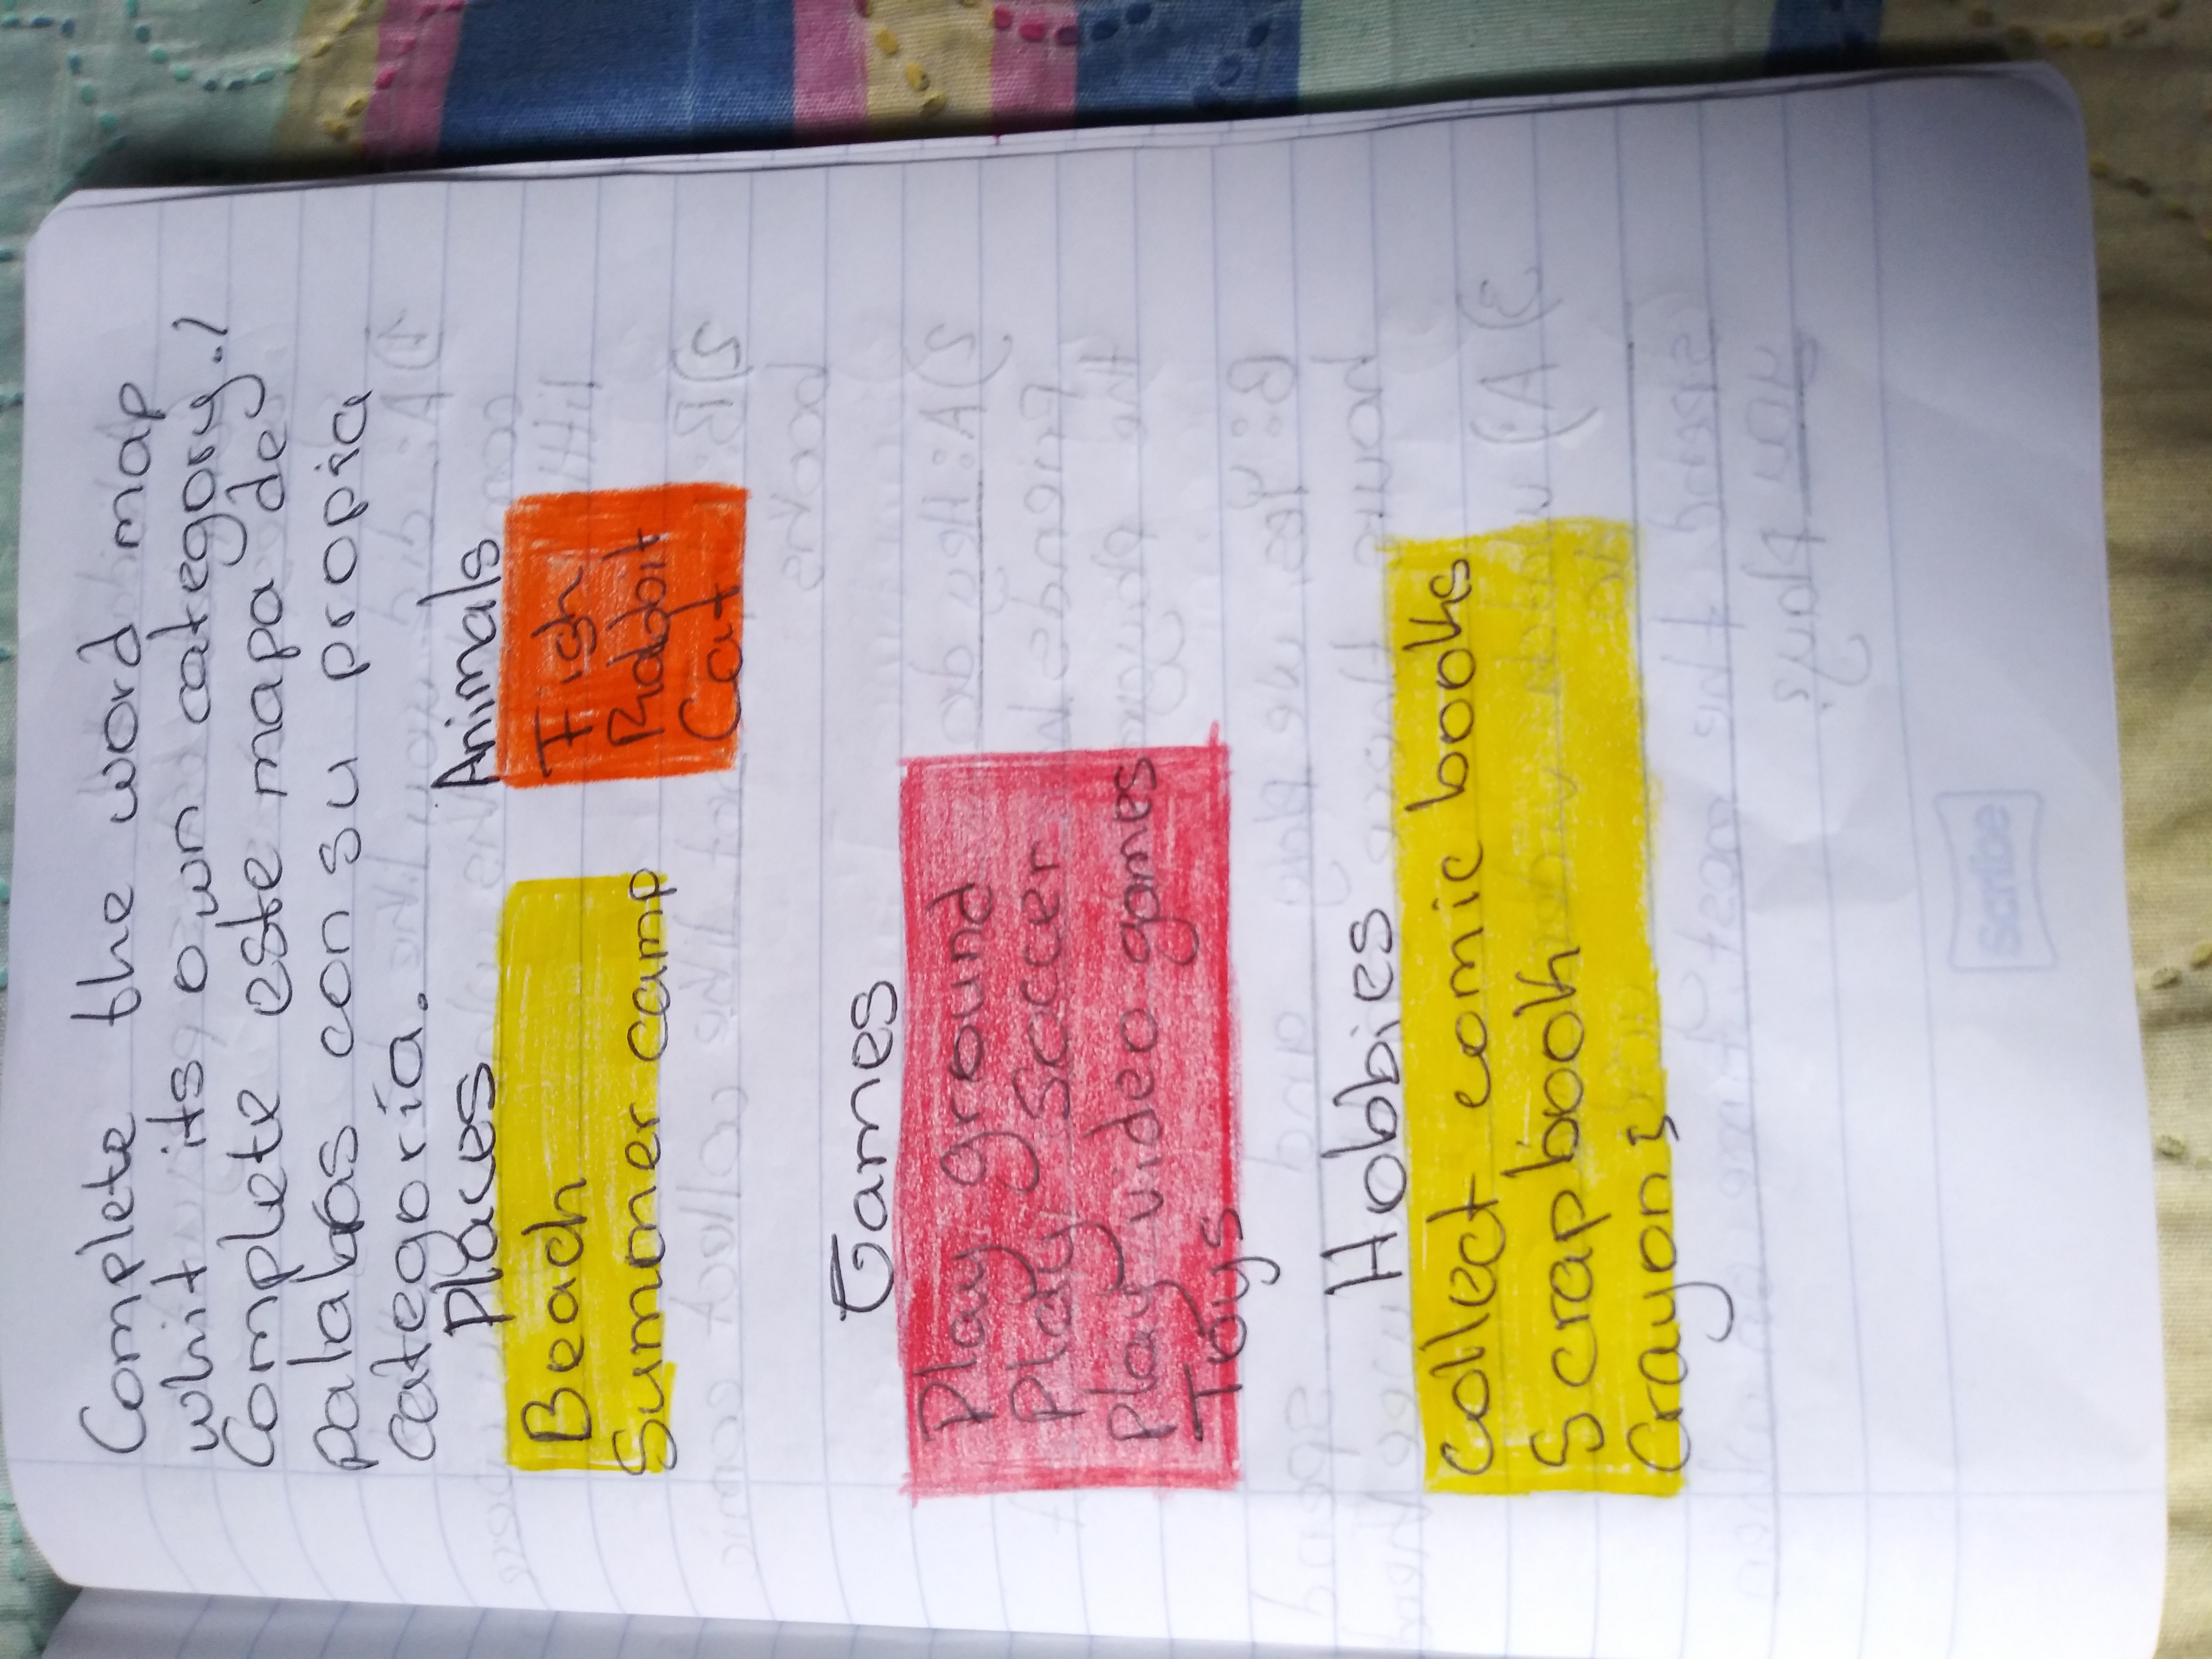 Complete the word map
whit its own category./
Complete este mapa de
palabras con su propia
categoría.
Places
Animals
Beach
Summer camp
Fish
Rabbit
Cat
Games
Play ground
Play Soccer
Play video games
Toys
Hobbies
Collect comic books
Scrapbook
Crayons
Scribe